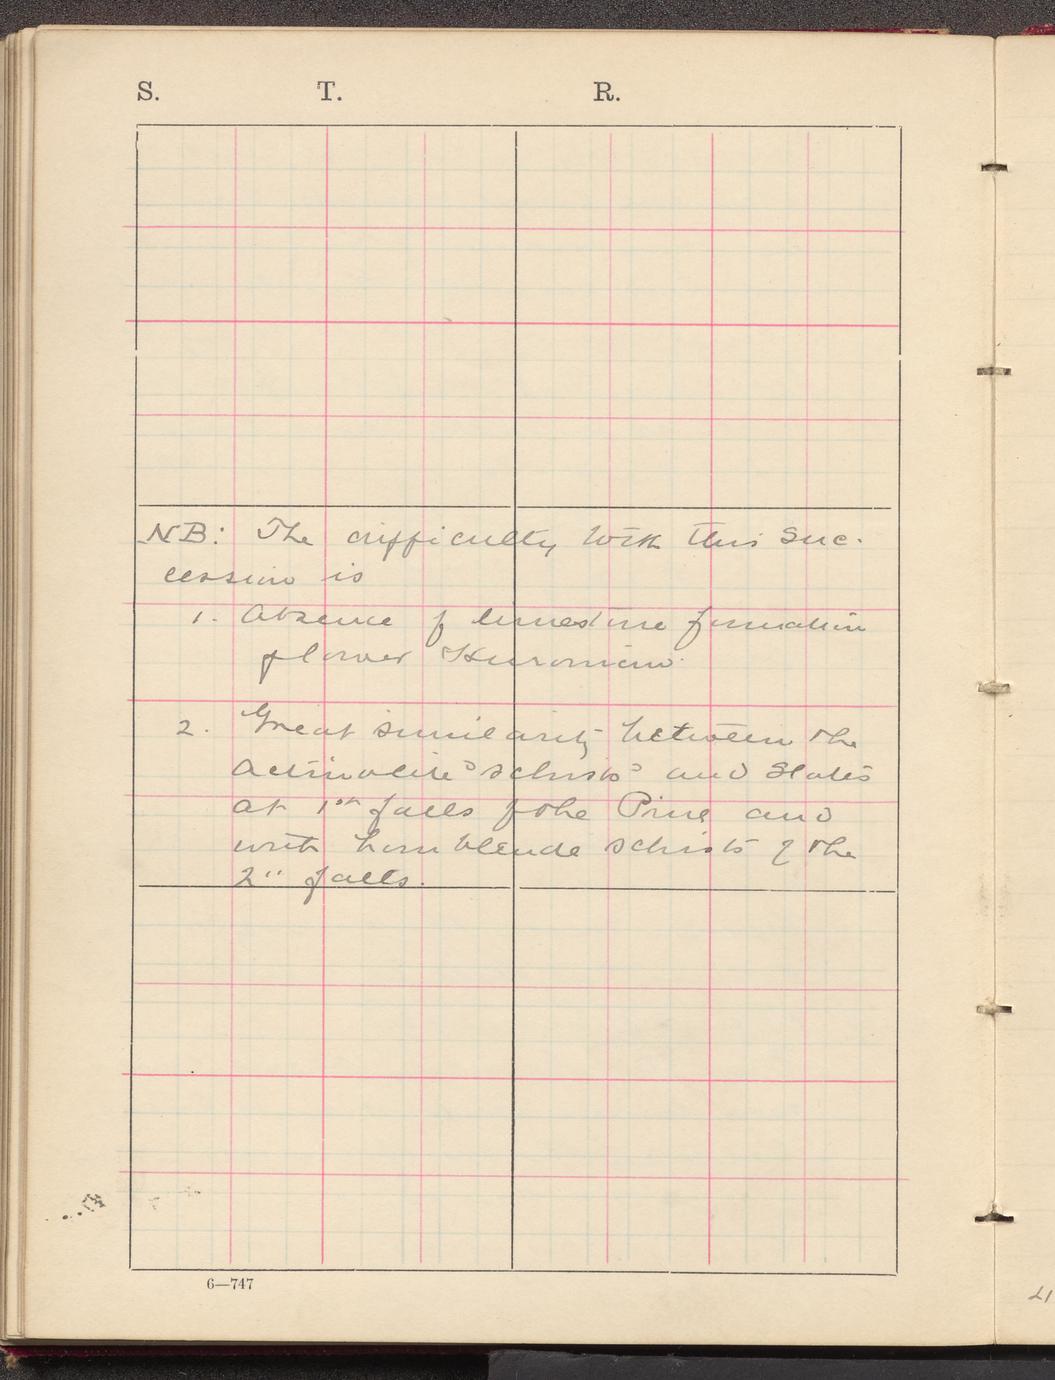 S. T. R.
NB: The difficulty with this Suc-
cession is
1. Absence of limestone formation
of lower Huronian.
2. Great similarity between the
Actinolite schists and slates
at 1st falls of the Pine and
with hornblende schists of the
2" falls.
6—747